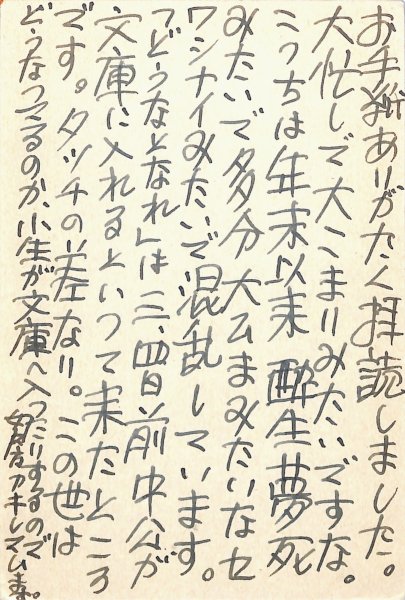 お手紙ありがたく拝読しました。
大忙しで大こまりみたいですな。
こっちは年末以来 酔生夢死
みたいで多分 大ムまみたいなセ
ワシナイみたいで混乱しています。
「どうなとなれ」は三、四日前中公が
文庫に入れるといって来たところ
です。タッチの差なり。この世は
どうなってるのか、小生が文庫へ入ったりするので
アキレています。